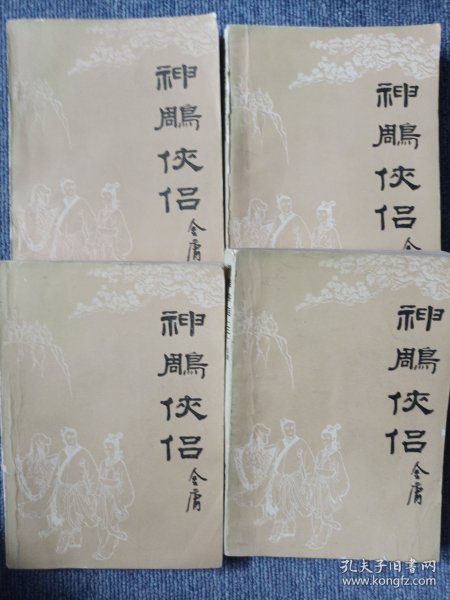 神鵰俠侶
金庸
神鵰俠侶
金
神鵰俠侶
金庸
神鵰俠侶
金庸
孔夫子旧书网
www.kongfz.com